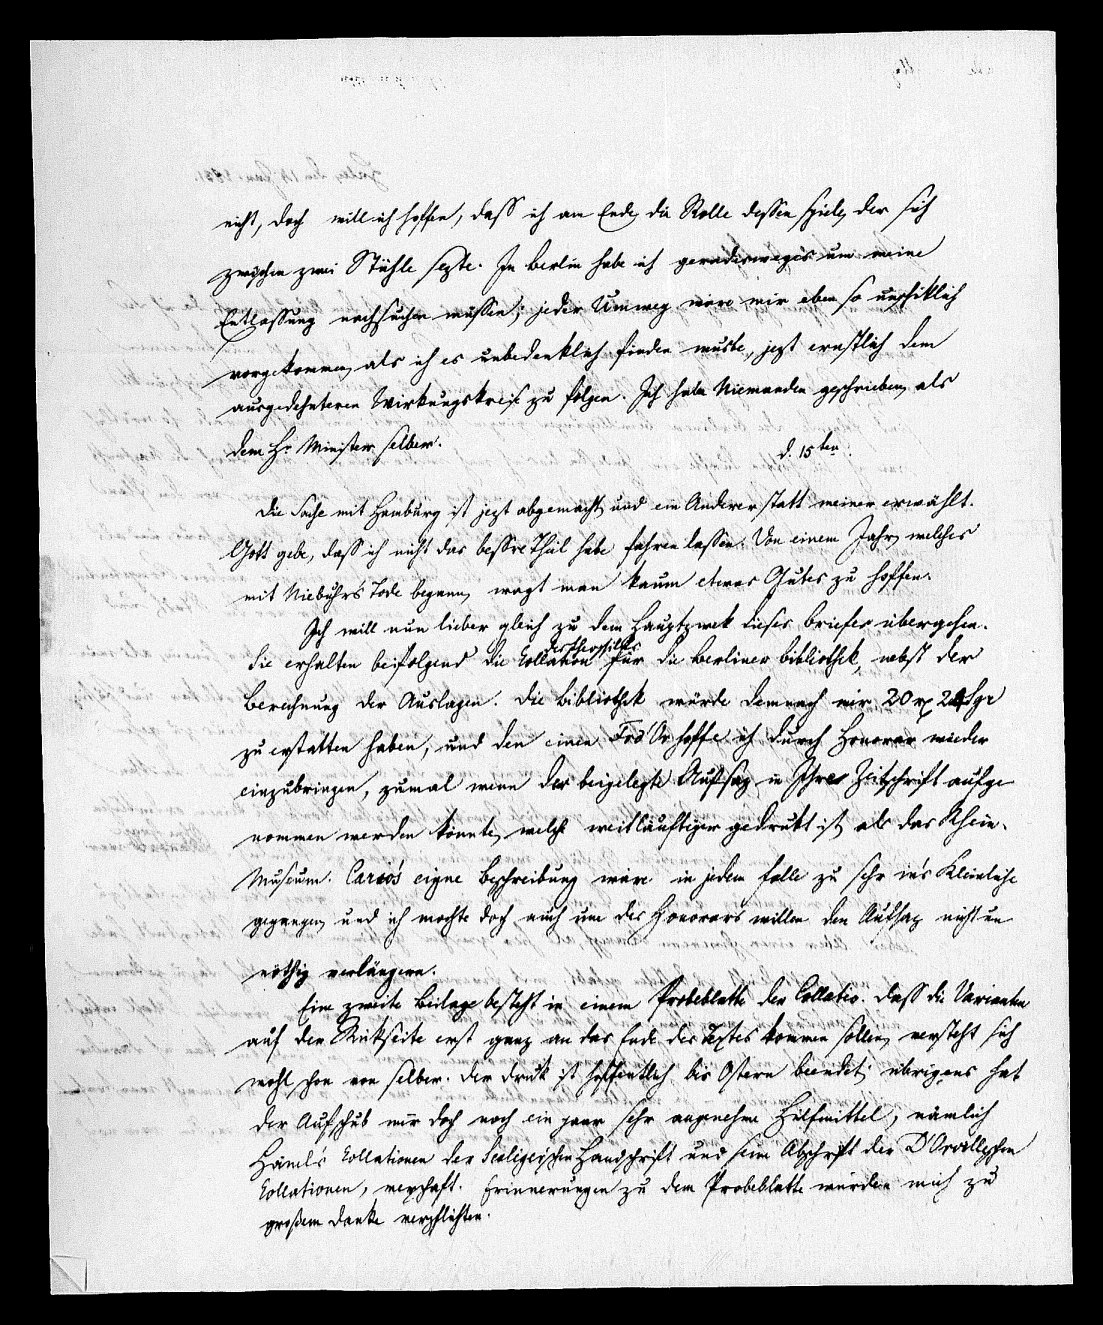 nicht, doch will ich hoffen, dass ich am Ende die Rolle dessen spiele, der sich
zwischen zwei Stühle sezte. In Berlin habe ich geradesweges um meine
Entlassung nachsuchen müssen; jeder Umweg wäre mir eben so unschiklich
vorgekommen, als ich es unbedenklich finden muste, jezt ernstlich dem
ausgedehnteren Wirkungskreise zu folgen. Ich habe Niemanden geschrieben, als
dem Hr Minister selber.
d. 15ten.
Die Sache mit Hamburg ist jezt abgemacht, und ein Anderer statt meiner erwählt.
Gott gebe, dass ich nicht das bessre Theil habe fahren lassen. Von einem Jahr, welches
mit Niebuhr's Tode begann, wagt man kaum etwas Gutes zu hoffen.
Ich will nun lieber gleich zu dem Hauptzwek dieses Briefes übergehen.
Sie erhalten beifolgend die Collation des Theophilus für die Berliner Bibliothek, nebst der
Berechnung der Auslagen. Die Bibliothek würde demnach mir 20 rx 24 Sgr
zu erstatten haben, und den einen Frd'Or hoffe ich durch Honorar wieder
einzubringen, zumal wenn der beigelegte Aufsaz in Ihrer Zeitschrift aufge
nommen werden könnte, welche weitläuftiger gedrukt ist, als das Rhein.
Museum. eigne Beschreibung wäre in jedem Falle zu sehr in's Kleinliche
gegangen, und ich mochte doch auch um des Honorars willen den Aufsaz nicht un
nöthig verlängern.
Eine zweite Beilage besteht in einem Probeblatte der Collatio. Dass die Varianten
auf der Rükseite erst ganz an das Ende des Textes kommen sollen, versteht sich
wohl schon von selber. Der Druk ist hoffentlich bis Ostern beendet; übrigens hat
der Aufschub mir doch noch ein paar sehr angenehme Hilfsmittel, nämlich
Hänel's Collationen der Scaligerischen Handschrift und seine Abschrift der D'Orvilleschen
Collationen, verschaft. Erinnerungen zu dem Probeblatte würden mich zu
großem Danke verpflichten.